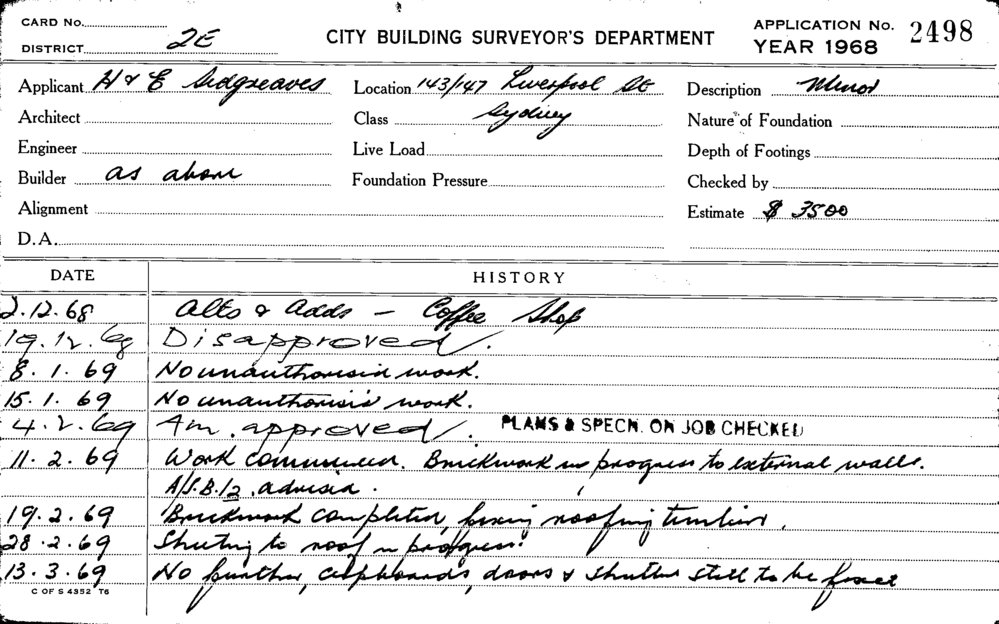 CARD No.
DISTRICT 2E
CITY BUILDING SURVEYOR'S DEPARTMENT
APPLICATION No. 2498
YEAR 1968
Applicant H & E Sedgreaves
Location 143/147 Liverpool St
Description Minor
Architect
Class Sydney
Nature of Foundation
Engineer
Live Load
Depth of Footings
Builder as above
Foundation Pressure
Checked by
Alignment
Estimate $ 3500
D.A.
DATE HISTORY
2.12.68 Alts & Adds - Coffee Shop
19.12.68 Disapproved.
8.1.69 No unauthorised work.
15.1.69 No unauthorised work.
4.2.69 Am. approved. PLANS & SPECN. ON JOB CHECKED
11.2.69 Work commenced. Brickwork in progress to external walls.
A/S.B./2 advised.
19.2.69 Brickwork completed, fixing roofing timbers.
28.2.69 Sheeting to roof in progress.
13.3.69 No further, cupboards, doors & shutter still to be fixed
C OF S 4352 T6